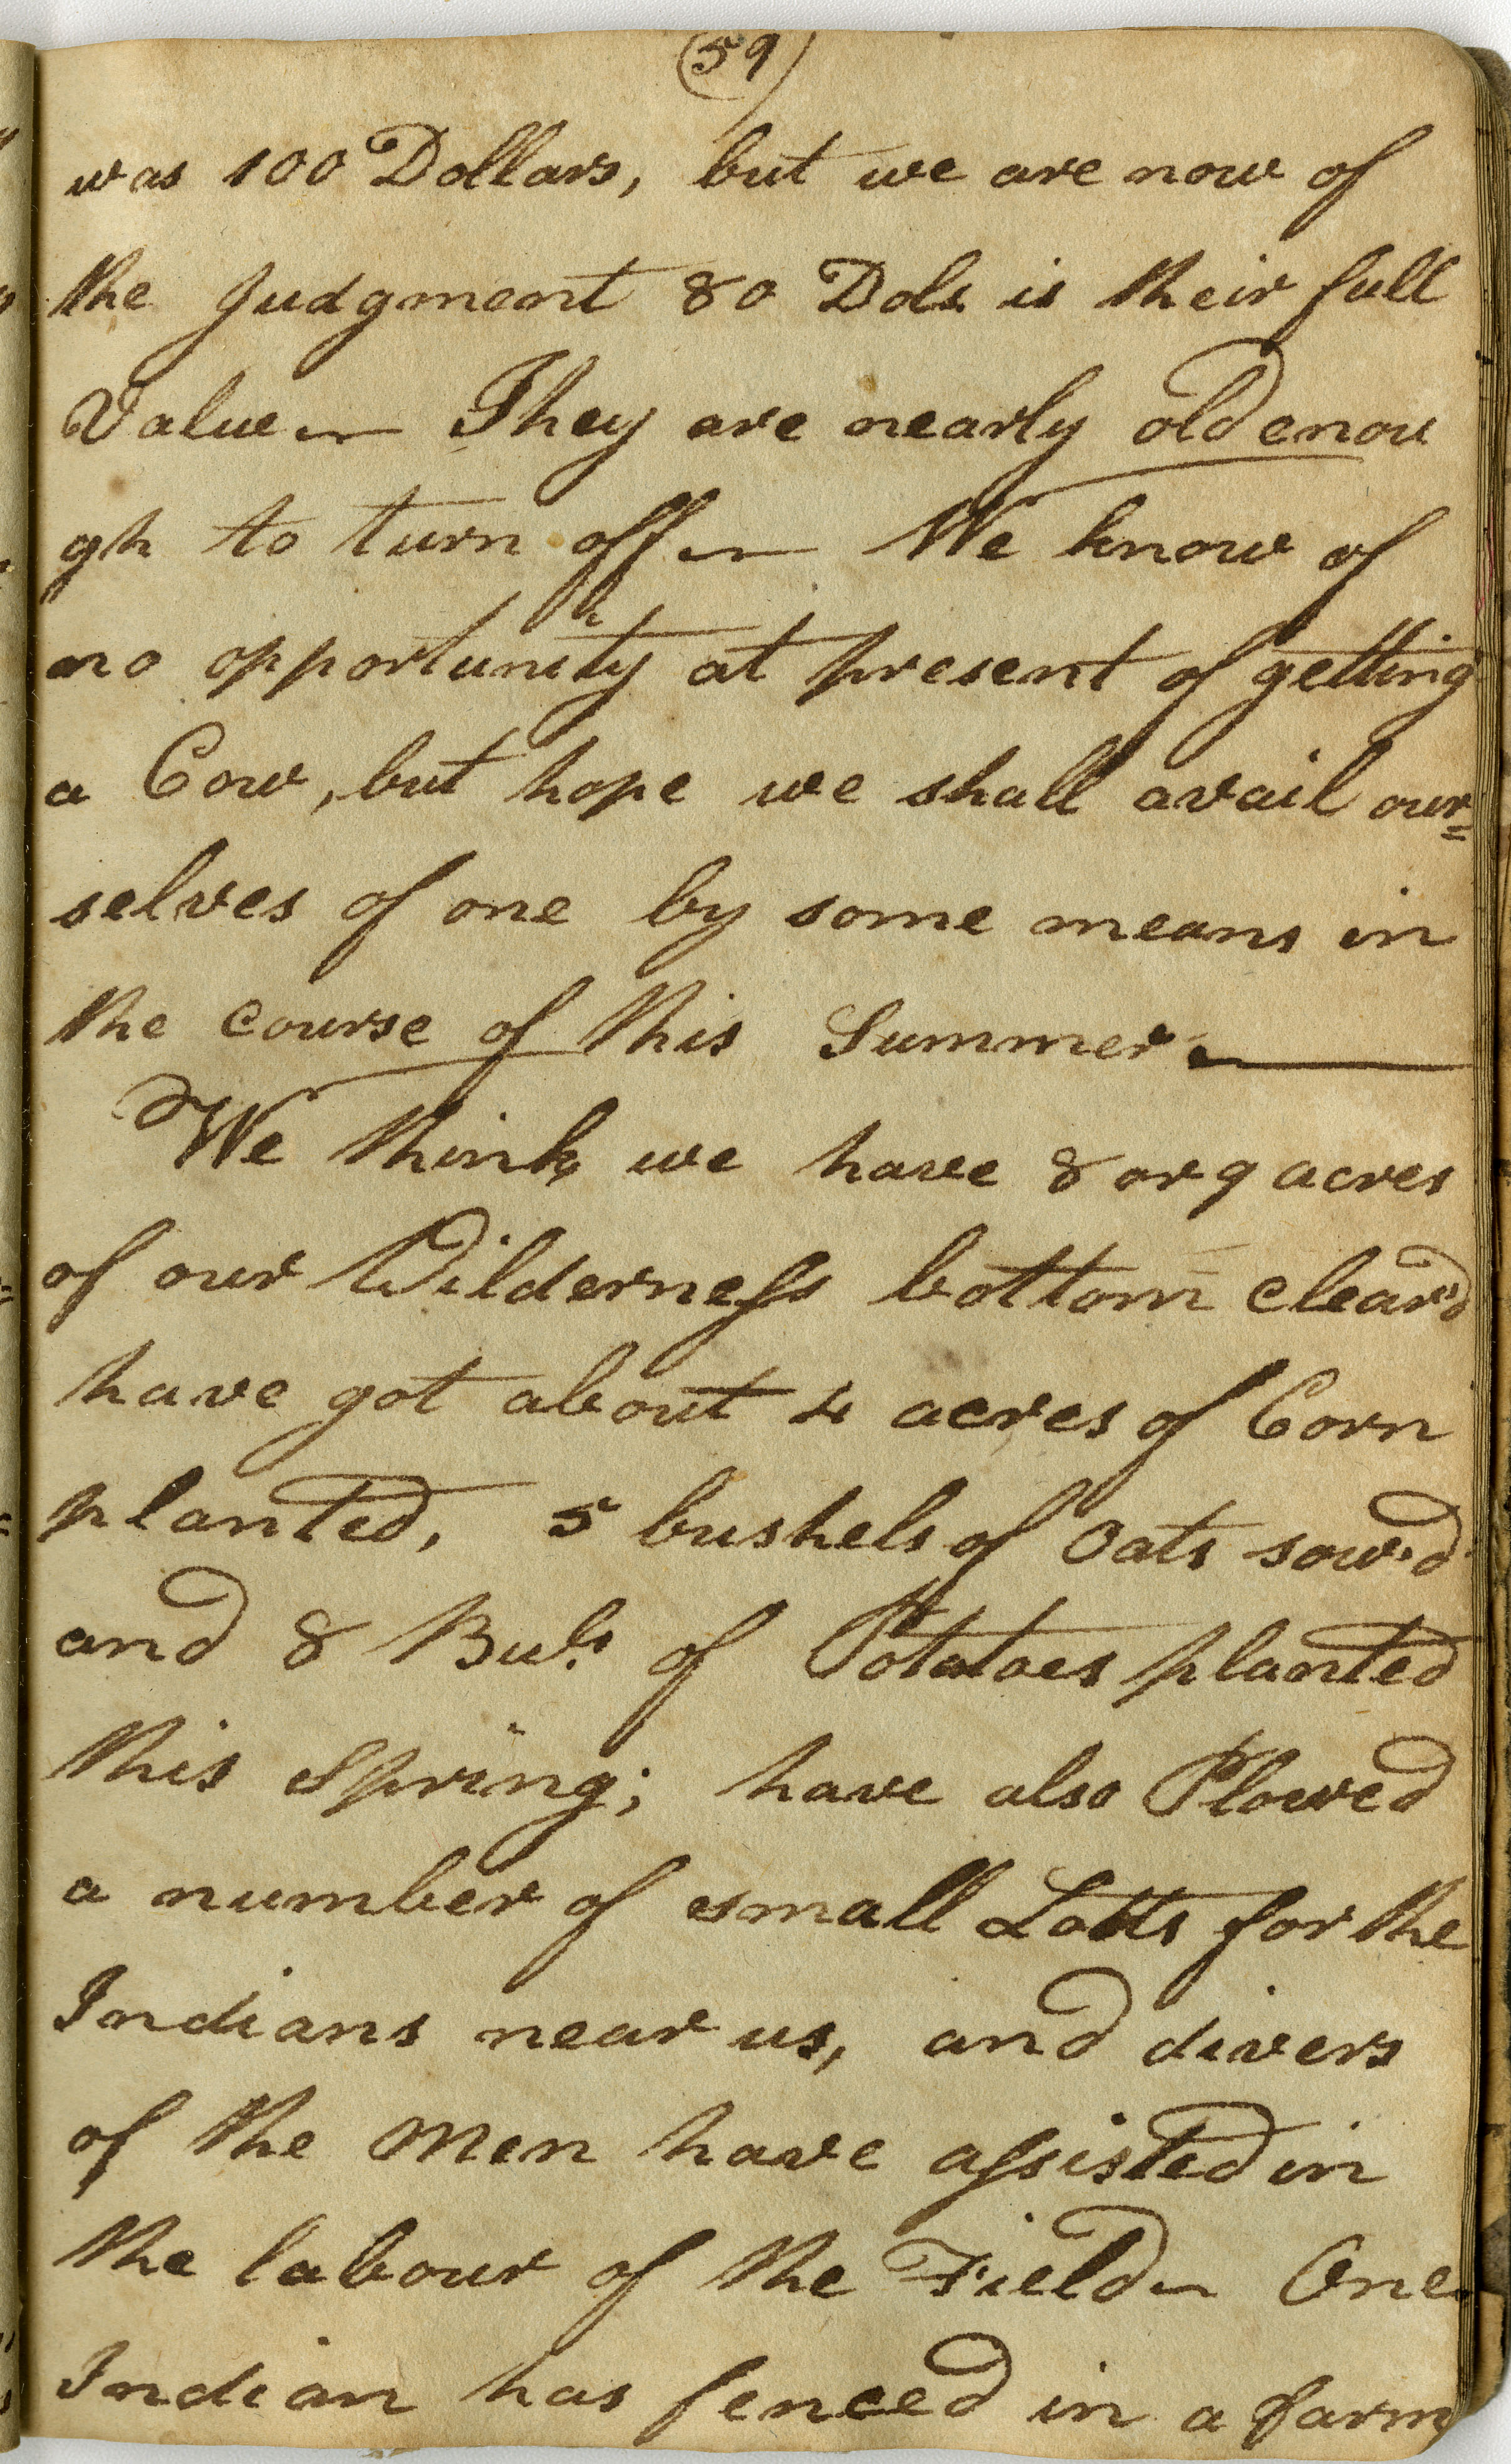 (59)
was 100 Dollars, but we are now of
the Judgment 80 Dols is their full
Value — They are nearly old enou
gh to turn off — We know of
no opportunity at present of getting
a Cow, but hope we shall avail our=
selves of one by some means in
the course of this Summer —
We think we have 8 or 9 acres
of our Wilderness bottom clear'd
have got about 4 acres of Corn
planted, 5 bushels of Oats sow'd
and 8 Buls. of Potatoes planted
this Spring; have also Plowed
a number of small Lotts for the
Indians near us, and divers
of the Men have assisted in
the labour of the Field — One
Indian has fenced in a farm